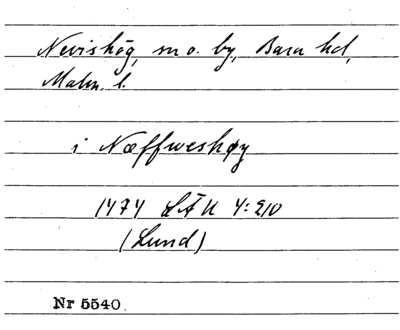 Nevishög, sn o. by, Bara hd,
Malm. l.
i Næffweshøy
1474 LÅU 4:210
(Lund)
Nr 5540